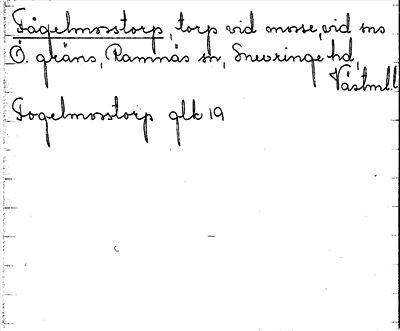 Fågelmosstorp, torp vid mosse, vid sns
Ö. gräns, Ramnäs sn, Snevringe hd,
Västml.
Fogelmosstorp glk 19